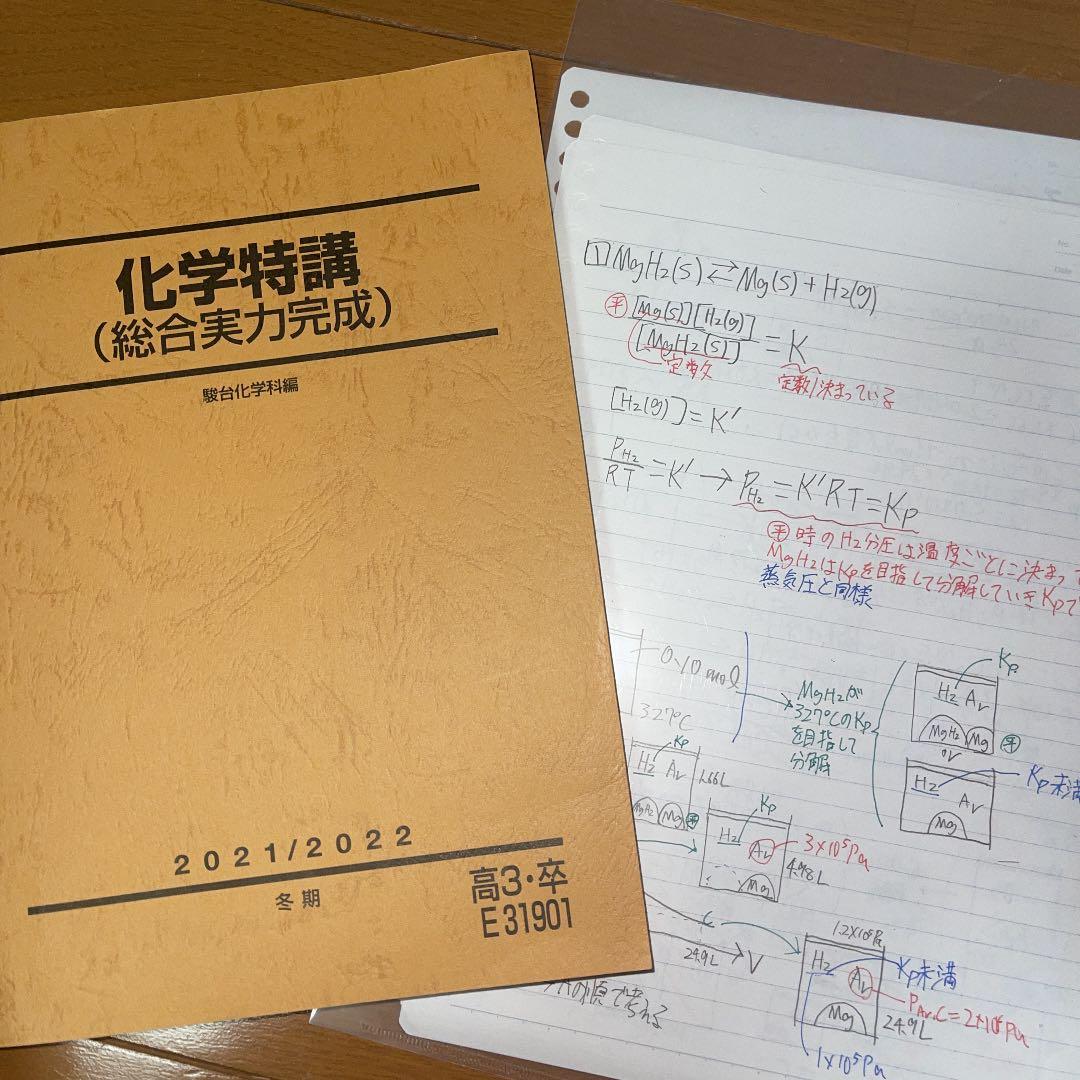 化学特講
(総合実力完成)
駿台化学科編
2021/2022
冬期
高3・卒
E31901
1 MgH2(s) ⇄ Mg(s) + H2(g)
平 [Mg(s)][H2(g)]
[MgH2(s)] = K
定数
定数/決まっている
[H2(g)] = K'
PH2/RT = K' → PH2 = K'RT = Kp
平 時のH2分圧は温度ごとに決まって
MgH2はKpを目指して分解していきKpで
蒸気圧と同様
0.10 mol
327℃
MgH2が
327℃のKp
を目指して
分解
Kp
H2 Ar
MgH2 Mg 平
or
H2 Kp未満
Ar
Mg
Kp
H2 Ar 1.66L
MgH2 Mg 平
Kp
H2
Ar 3×10⁵Pa
4.98L
Mg
C
24.9L V
の順で考える
H2 Kp未満
Ar
PAr,C=2×10⁴Pa
Mg 24.9L
1×10⁵Pa